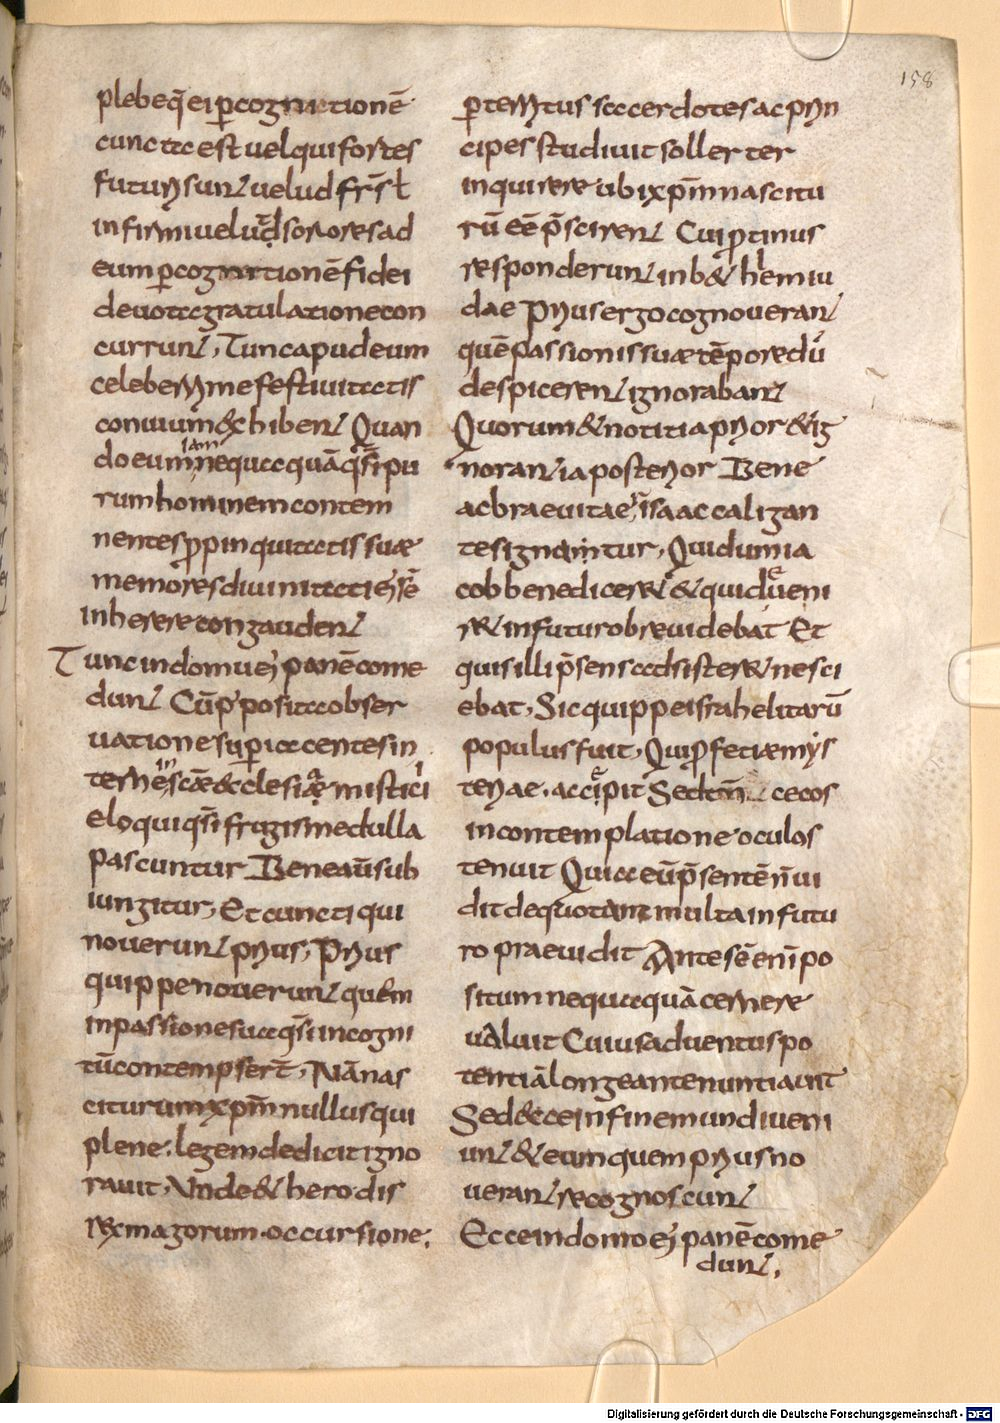 158
plebeq̄ ei p̄ cognationē
cuncta est uel qui fortes
futuri sunt uelud fr̄s ł
infirmi uelud sorores ad
eum p̄ cognationē fidei
deuota gratulatione con
currunt, Tunc apud eum
celeberrime festiuitatis
conuiuium exhibent Quan
do eum iam nequaquā q̄si pu
rum hominem contem
nentes ꝓpinquitatis suæ
memores diuinitati eius sē
inherere congaudent
Tunc in domu eius panē come
dunt Cū p̄ posita obser
uatione sup̄iacentes in
terne scæ ecclesiæ mistici
eloqui q̄si frugis medulla
pascuntur Bene aū sub
iungitur, Et cuncti qui
nouerunt prius, Prius
quippe nouerunt quem
in passione sua q̄si incogni
tū contempsert̄, Nā nas
citurum xp̄m nullus qui
plene legem dedicit igno
rauit, Vnde & herodis
rex magorum occursione;
p̄territus sacerdotes ac prin
cipes studiuit sollerter
inquirere ubi xp̄m nascitu
rū eē p̄scirent Cui ꝓtinus
responderunt in b&hlem iu
dae Prius ergo cognouerant
quē passionis suæ tēpore dū
despicerent ignorabant
Quorum & notitia prior & ig
norantia posterior Bene
ac braeuitaer isaac caligan
te signantur, Qui dum ia
cob benedicer& & quid ueni
r& in futuro breui debat Et
quis illi p̄sens adsister& nesci
ebat, Sic quippe israhelitarū
populus fuit, Qui ꝓfetiæ mys
teriae accipit Sed tn̄ cecos
in contemplatione oculos
tenuit Quia eū p̄sentē n̄ ui
dit de quo tam multa in futu
ro praeuidit Ante sē eni po
situm nequaquā cernere
ualuit Cuius aduentus po
tentiā longe ante nuntiauit
Sed ecce in fine mundi ueni
unt & eum quem prius no
uerant recognoscunt
Ecce in domo eius panē come
dunt,
Digitalisierung gefördert durch die Deutsche Forschungsgemeinschaft - DFG